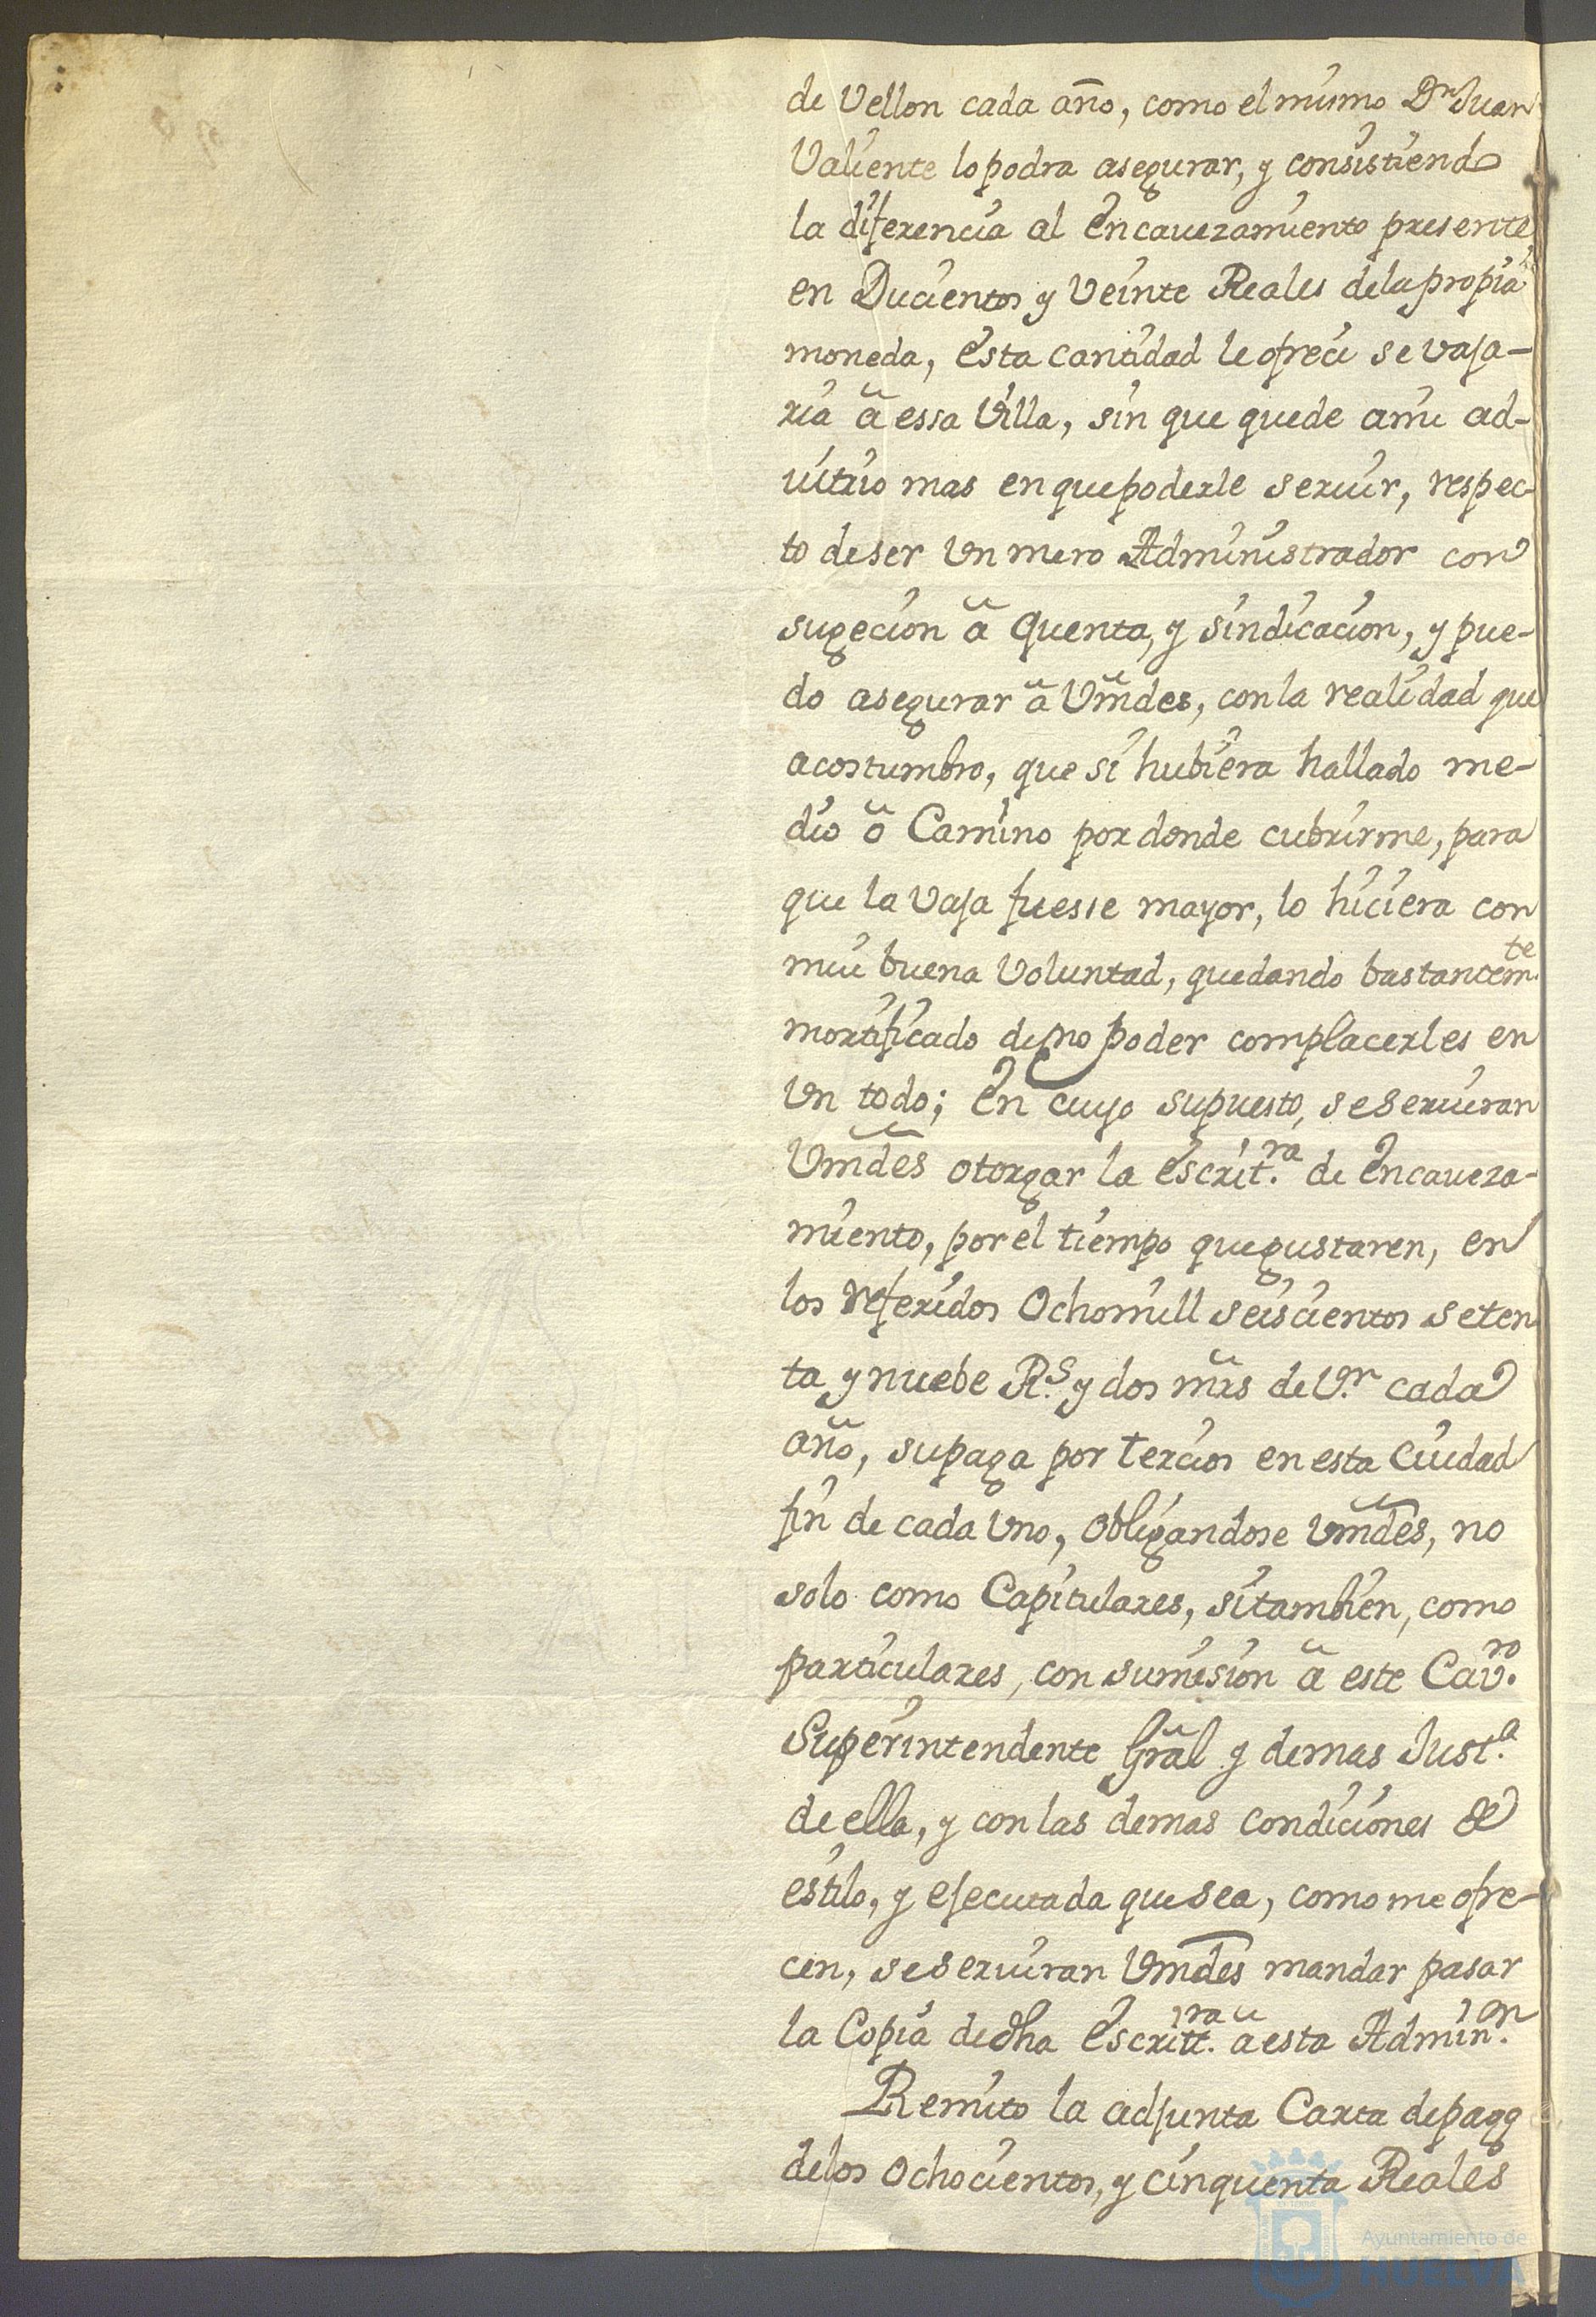 de Vellon cada año, como el mismo Dn Juan
Valiente lo podra asegurar, y consistiendo
la diferencia al encauezamiento presente,
en Ducientos y Veinte Reales dela propia
moneda, esta cantidad le ofreci se vaja-
ria â essa Villa, sin que quede ami ad-
uitrio mas en que poderle seruir, respec-
to deser Un mero Administrador con
sugecion â Quenta, y sindicacion, y pue-
do asegurar â Vmdes, con la realidad que
acostumbro, que si hubiera hallado me-
dio ô Camino por donde cubrirme, para
que la vaja fuesse mayor, lo hiciera con
mui buena Voluntad, quedando bastantemte.
mortificado de no poder complacerles en
Un todo; En cuyo supuesto, se seruiran
Vmdes otorgar la escritra. de encaueza-
miento, por el tiempo que gustaren, en
los referidos Ochomill seiscientos seten
ta y nuebe Rs. y dos mrs de Vn. cada
año, su paga por tercios en esta Ciudad
fin de cada Uno, obligandose Vmdes, no
solo como Capitulares, si tambien, como
particulares, con sumision â este Cavro.
Superintendente Gral y demas Justa.
de ella, y con las demas condiciones de
estilo, y ejecutada que sea, como me ofre-
cen, se seruiran Vmdes mandar pasar
la Copia de dha Escrittra. â esta Adminon.
Remito la adjunta Carta de pago
delos ochocientos, y cinquenta Reales
Ayuntamiento de
HUELVA